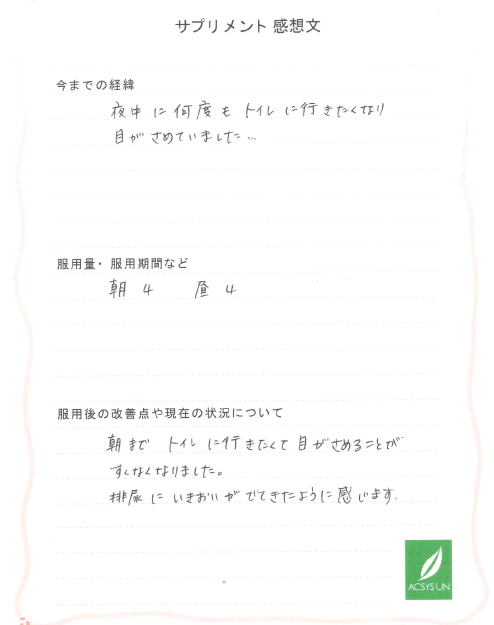 サプリメント 感想文
今までの経緯
夜中に何度もトイレに行きたくなり
目がさめていました…
服用量・服用期間など
朝 4 昼 4
服用後の改善点や現在の状況について
朝まで トイレに行きたくて目がさめることが
すくなくなりました。
排尿にいきおいがでてきたように感じます.
ACSYS UN